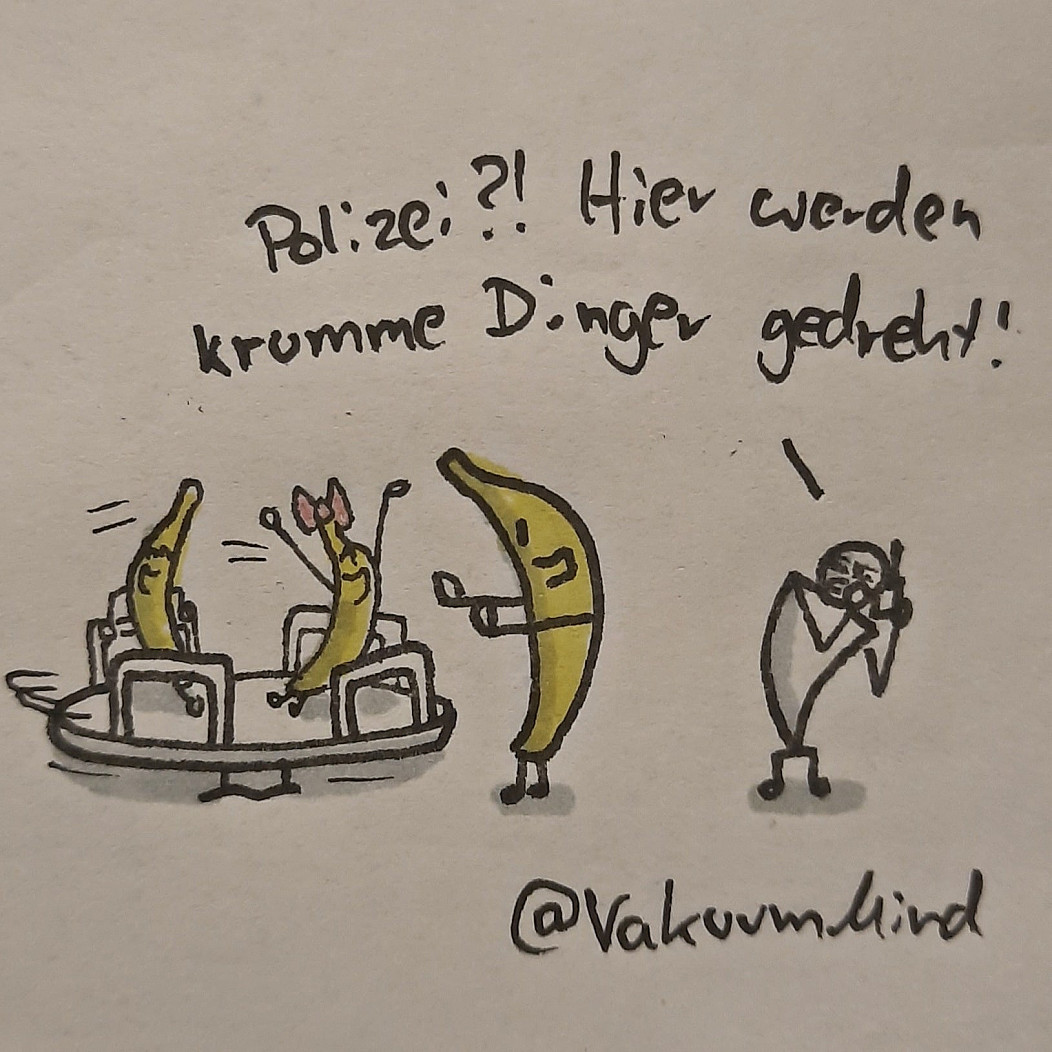 Polizei?! Hier werden
krumme Dinger gedreht!
@VakuumMind